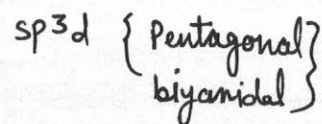 sp³d { Pentagonal }
biyamidal